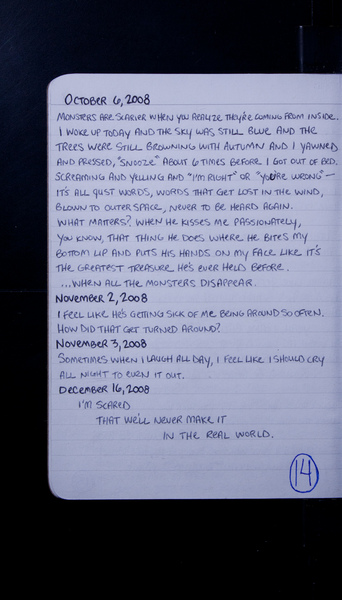 OCTOBER 6, 2008
MONSTERS ARE SCARIER WHEN YOU REALIZE THEY'RE COMING FROM INSIDE.
I WOKE UP TODAY AND THE SKY WAS STILL BLUE AND THE
TREES WERE STILL BROWNING WITH AUTUMN AND I YAWNED
AND PRESSED, "SNOOZE" ABOUT 6 TIMES BEFORE I GOT OUT OF BED.
SCREAMING AND YELLING AND "I'M RIGHT" OR "YOU'RE WRONG" —
IT'S ALL JUST WORDS, WORDS THAT GET LOST IN THE WIND,
BLOWN TO OUTER SPACE, NEVER TO BE HEARD AGAIN.
WHAT MATTERS? WHEN HE KISSES ME PASSIONATELY,
YOU KNOW, THAT THING HE DOES WHERE HE BITES MY
BOTTOM LIP AND PUTS HIS HANDS ON MY FACE LIKE IT'S
THE GREATEST TREASURE HE'S EVER HELD BEFORE.
...WHEN ALL THE MONSTERS DISAPPEAR.
NOVEMBER 2, 2008
I FEEL LIKE HE'S GETTING SICK OF ME BEING AROUND SO OFTEN.
HOW DID THAT GET TURNED AROUND?
NOVEMBER 3, 2008
SOMETIMES WHEN I LAUGH ALL DAY, I FEEL LIKE I SHOULD CRY
ALL NIGHT TO EVEN IT OUT.
DECEMBER 16, 2008
I'M SCARED
THAT WE'LL NEVER MAKE IT
IN THE REAL WORLD.
14